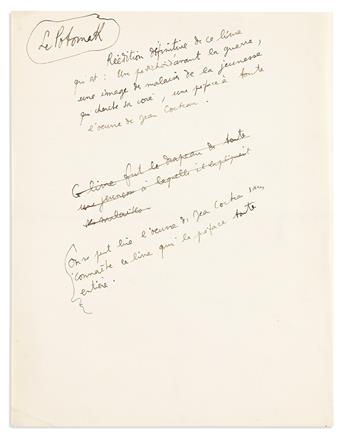 Le Potomak
Réédition définitive de ce livre
qui est : Un périscope avant la guerre,
une image de malaises de la jeunesse
qui cherche sa voie, une préface à toute
l'œuvre de Jean Cocteau.
Ce livre fut le drapeau de toute
une jeunesse à laquelle il expliquait
ses malaises
On ne peut lire l'œuvre de Jean Cocteau sans
connaître ce livre qui la préface toute
entière.